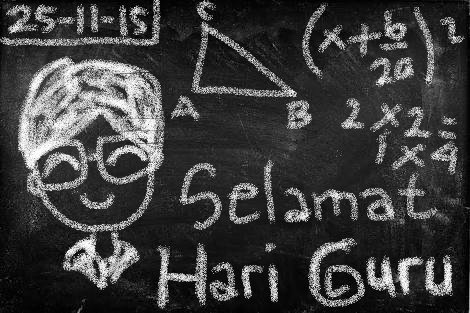 25-11-15
C
A
B
(x + b/2a)²
2 x 2 =
1 x 4
Selamat
Hari Guru